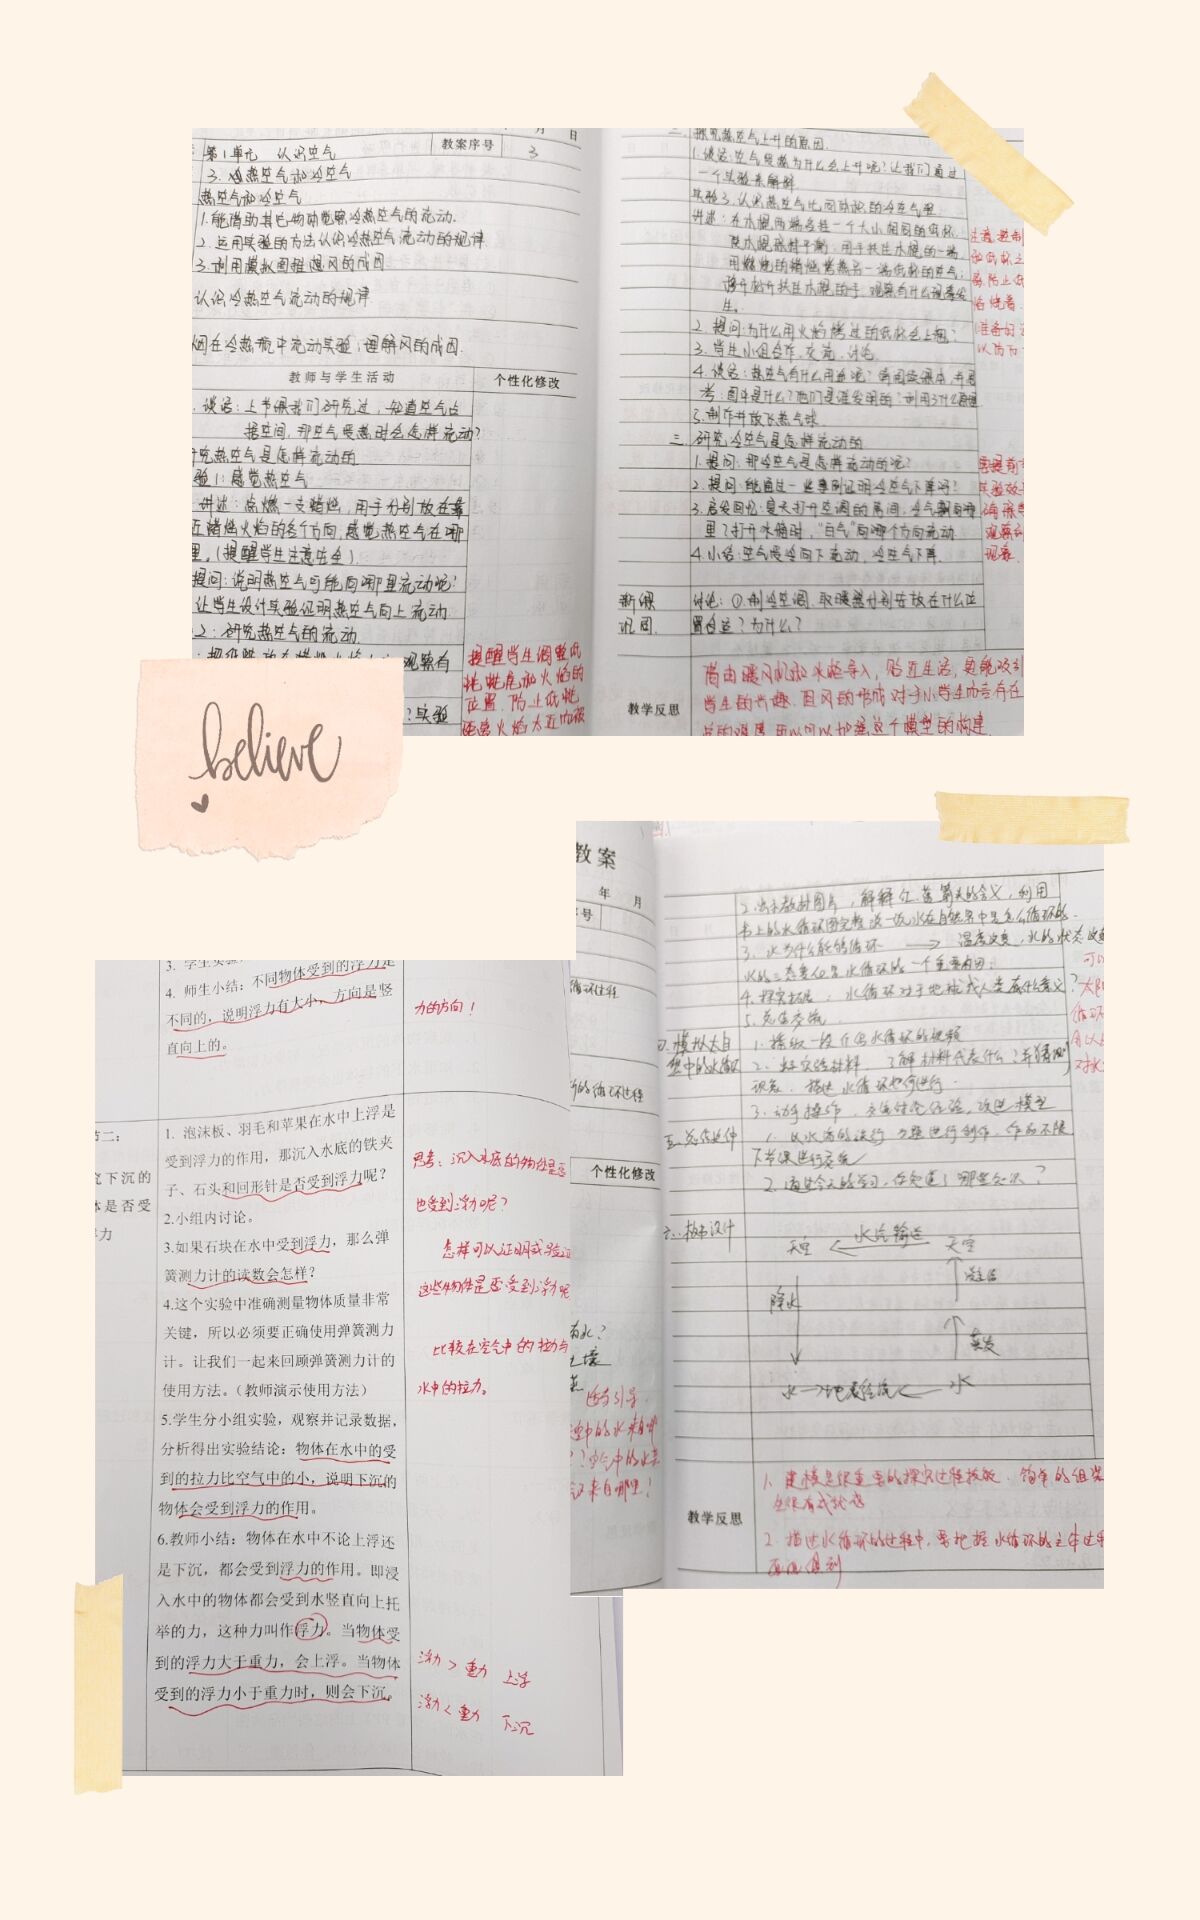 月 日
第1单元 认识空气
教案序号
3
3.热空气和冷空气
热空气和冷空气
1.能借助其它物体觉察冷热空气的流动.
2.运用实验的方法认识冷热空气流动的规律
3.利用模拟图推想风的成因
认识冷热空气流动的规律
烟在冷热瓶中流动实验,理解风的成因.
教师与学生活动
个性化修改
谈话:上节课我们研究过,知道空气占
据空间,那空气受热时会怎样流动?
究热空气是怎样流动的
验1:感觉热空气
讲述:点燃一支蜡烛,用手分别放在靠
近蜡烛火焰的各个方向,感觉热空气在哪
里。(提醒学生注意安全)
提问:说明热空气可能向哪里流动呢?
让学生设计实验证明热空气向上流动
2:研究热空气的流动
观察有
?实验
提醒学生调整纸
位置.防止纸蛇
探究热空气上升的原因.
1.谈话:空气受热为什么会上升呢?让我们通过
一个实验来解释
实验3.认识热空气比同体积的冷空气轻
讲述:在木棍两端各挂一个大小相同的纸杯.
使木棍保持平衡;用手扶住木棍的一端.
用燃烧的蜡烛烤热另一端纸杯的空气;
移开扶住木棍的手,观察有什么现象发
生。
2.提问:为什么用火焰烤过的纸杯会上翘?
3.学生小组合作,交流,讨论
4.谈话:热空气有什么用途呢?请阅读课本,并思
考:图中是什么?他们是谁发明的?利用了什么原理
5.制作并放飞热气球.
三.研究冷空气是怎样流动的
1.提问:那冷空气是怎样流动的呢?
2.提问:能通过一些事例证明冷空气下降吗?
3.启发回忆:夏天打开空调的房间,冷气飘向哪
里?打开冰箱时,“白气”向哪个方向流动
4.小结:空气受冷向下流动,冷空气下降.
新课
巩固
讨论:①.制冷空调.取暖器分别安放在什么位
置合适?为什么?
教学反思
借由暖风机和冰箱导入,贴近生活,更能吸引
学生的兴趣.但风的形成对于小学生而言存在
believe
教案
年 月
序号
循环过程
的循环过程
个性化修改
有水?
适当引导.
又来自哪里?
2.出示教材图片,解释红.蓝箭头的含义,利用
书上的水循环图完整说一说水在自然界中是怎么循环的.
3.水为什么能够循环 → 温度改变,水的状态改变
水的三态变化是水循环的一个重要原因.
4.探究拓展:水循环对于地球或人类有什么意义?
5.总结交流
四.模拟大自
然中的水循环
1.播放一段介绍水循环的视频
2.出示实验材料,了解材料代表什么?并猜测
现象.描述水循环如何进行.
3.动手操作,交流讨论经验,改进模型
五.总结延伸
下节课进行交流
2.通过今天的学习,你知道了哪些知识?
六.板书设计
天空 ← 水汽输送 天空
凝结
降水
蒸发
水→地表径流← 水
教学反思
1.建模是很重要的探究过程技能.简单的组装
2.描述水循环的过程中,要把握水循环的主体过程
3. 学生实验
4. 师生小结:不同物体受到的浮力是
不同的,说明浮力有大小,方向是竖
直向上的。
力的方向!
节二:
究下沉的
体是否受
力
1. 泡沫板、羽毛和苹果在水中上浮是
受到浮力的作用,那沉入水底的铁夹
子、石头和回形针是否受到浮力呢?
2.小组内讨论。
3.如果石块在水中受到浮力,那么弹
簧测力计的读数会怎样?
4.这个实验中准确测量物体质量非常
关键,所以必须要正确使用弹簧测力
计。让我们一起来回顾弹簧测力计的
使用方法。(教师演示使用方法)
5.学生分小组实验,观察并记录数据,
分析得出实验结论:物体在水中的受
到的拉力比空气中的小,说明下沉的
物体会受到浮力的作用。
6.教师小结:物体在水中不论上浮还
是下沉,都会受到浮力的作用。即浸
入水中的物体都会受到水竖直向上托
举的力,这种力叫作浮力。当物体受
到的浮力大于重力,会上浮。当物体
受到的浮力小于重力时,则会下沉。
思考:沉入水底的物体是否
也受到浮力呢?
怎样可以证明或验证
这些物体是否受到浮力呢
比较在空气中的拉力与
水中的拉力。
浮力 > 重力 上浮
浮力 < 重力 下沉